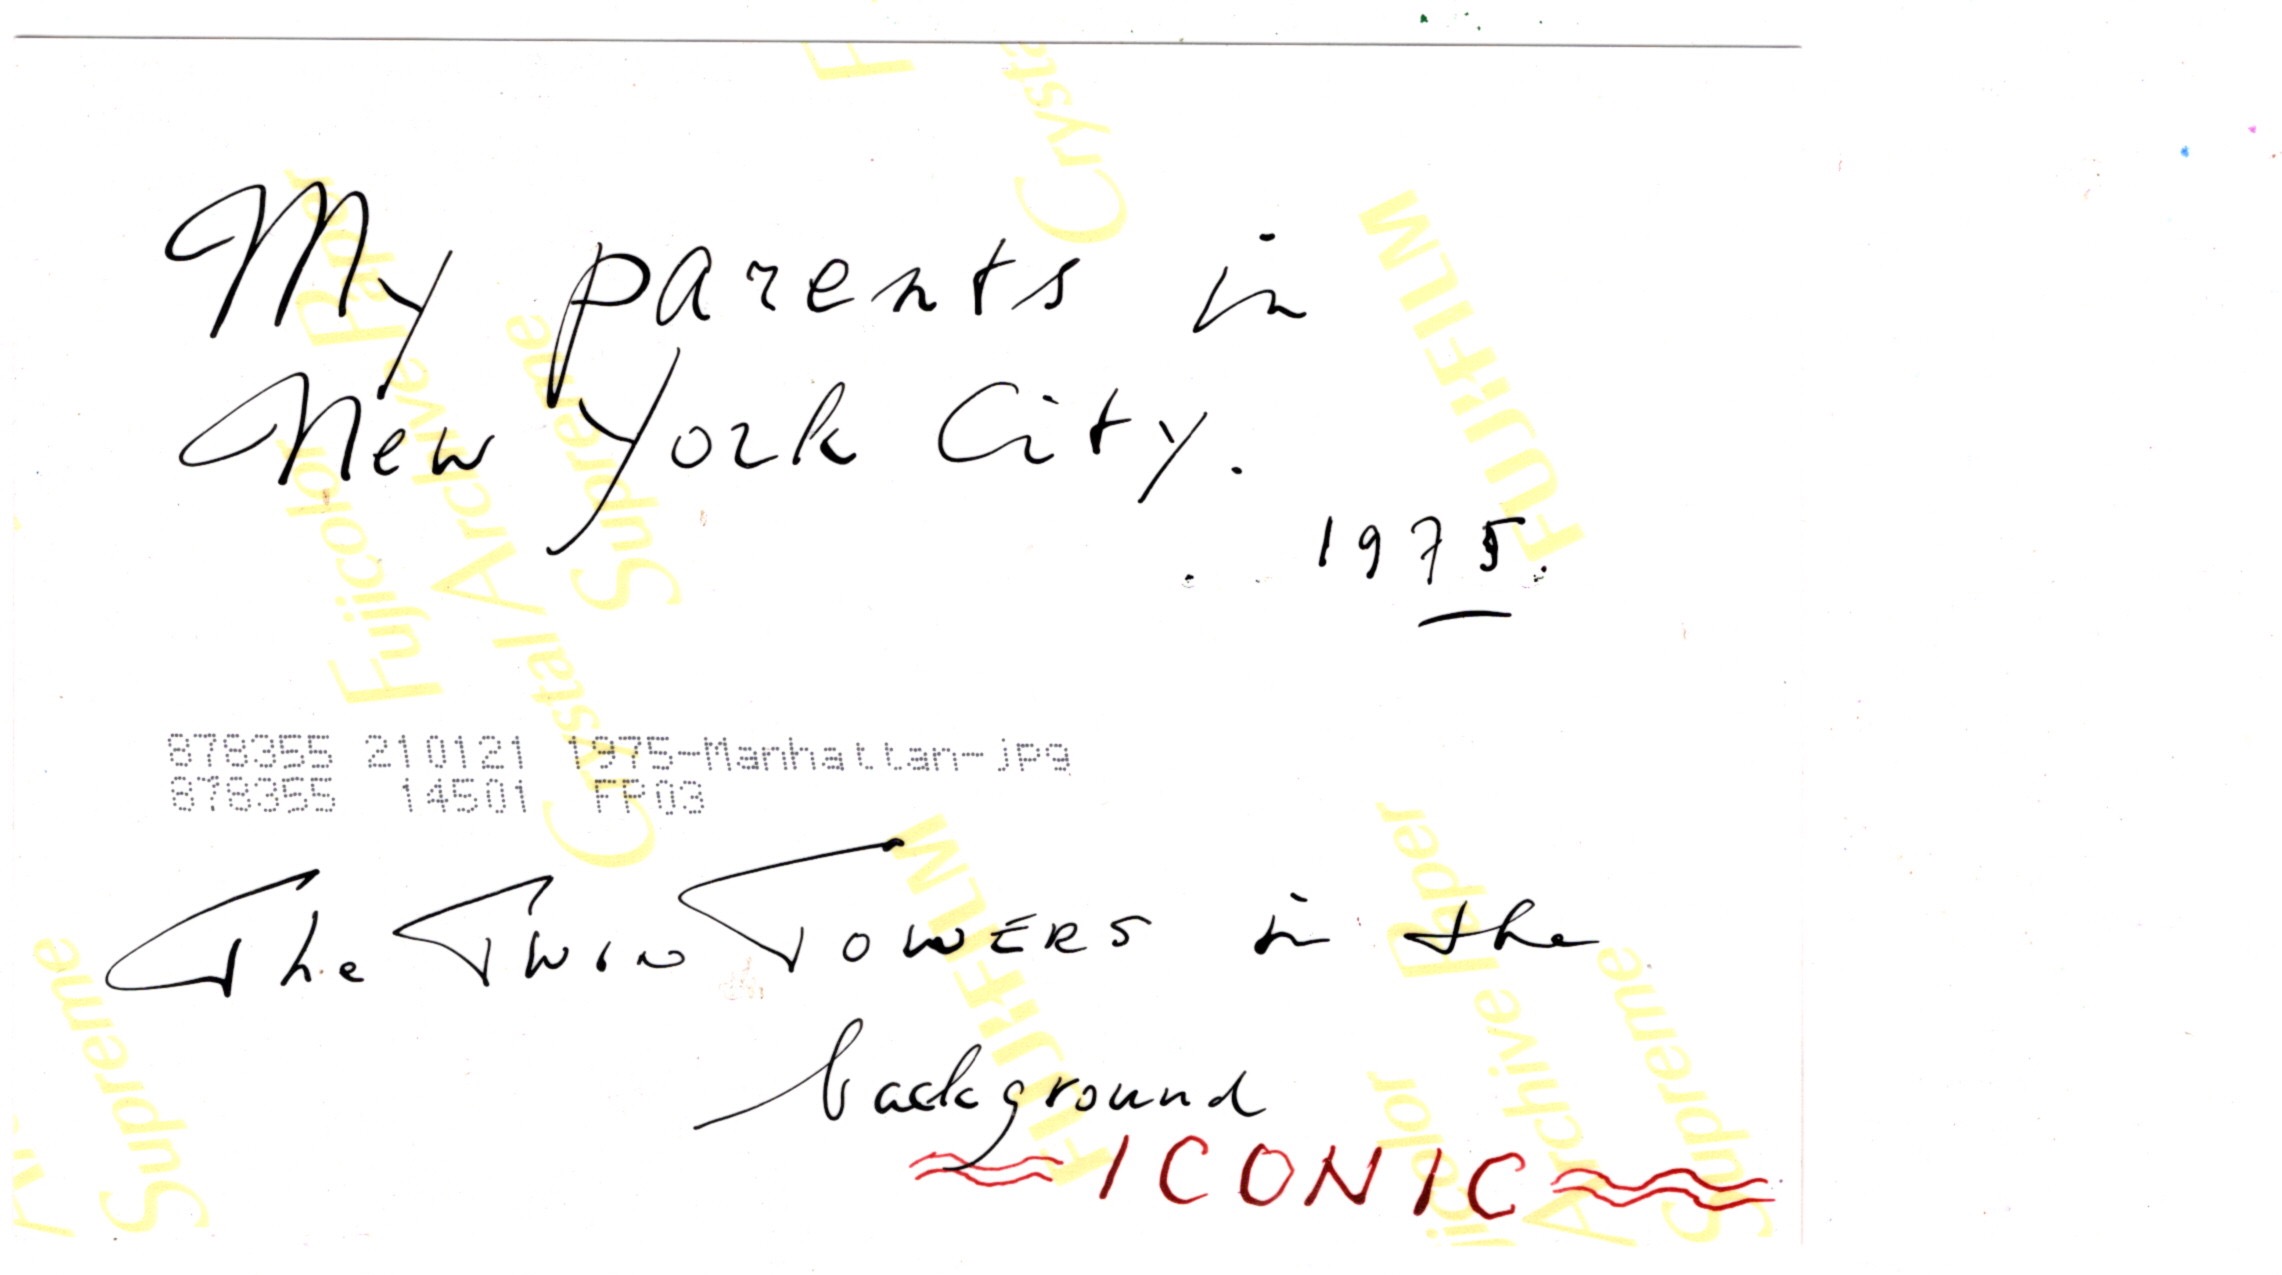 My parents in
New York City.
1975.
878355 210121 1975-Manhattan-jpg
878355 14501 FP03
The Twin Towers in the
background
ICONIC
Fujicolor
Crystal Archive Paper
Supreme
FUJIFILM
Cryst
FUJIFILM
Supreme
jicolor
Archive Paper
Supreme